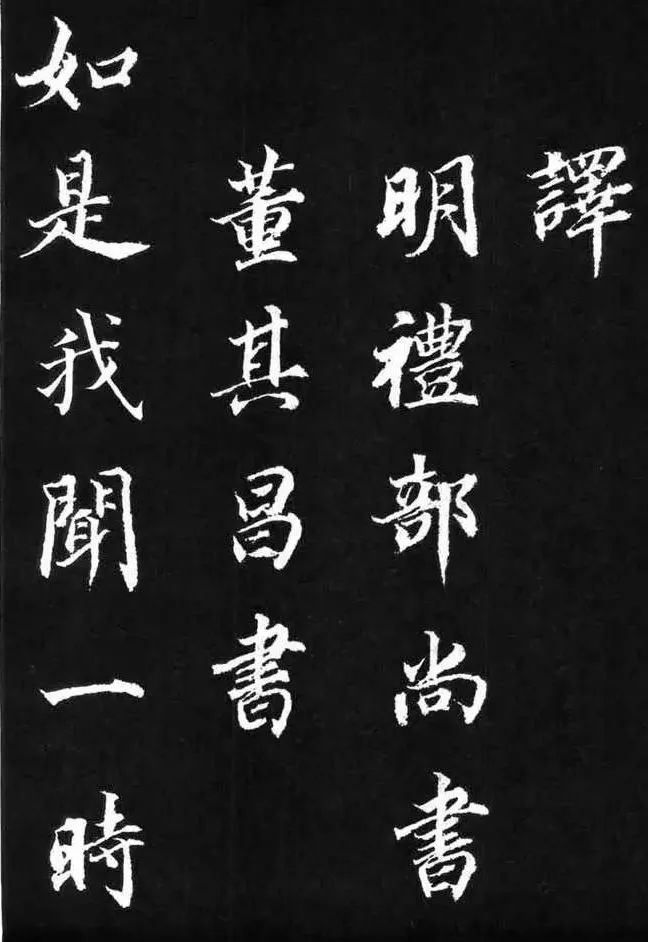 譯
明禮部尚書
董其昌書
如是我聞一時